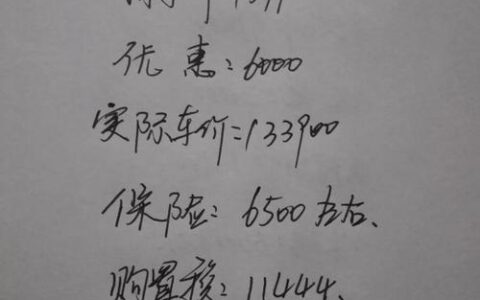 优惠:6000
实际车价:133900
保险:6500左右、
购置税:11444、